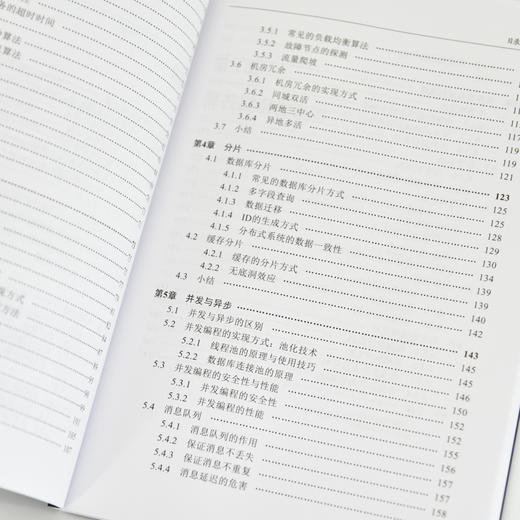 务的超时时间
算法
算法
现方式
方法
目录
3.5.1 常见的负载均衡算法
3.5.2 故障节点的探测
3.5.3 流量爬坡
3.6 机房冗余
3.6.1 机房冗余的实现方式 117
3.6.2 同城双活 117
3.6.3 两地三中心
3.6.4 异地多活 119
3.7 小结 121
第4章 分片 123
4.1 数据库分片
4.1.1 常见的数据库分片方式 125
4.1.2 多字段查询 125
4.1.3 数据迁移 128
4.1.4 ID的生成方式 129
4.1.5 分布式系统的数据一致性 130
4.2 缓存分片 134
4.2.1 缓存的分片方式 134
4.2.2 无底洞效应 139
4.3 小结 142
第5章 并发与异步 143
5.1 并发与异步的区别 145
5.2 并发编程的实现方式：池化技术 145
5.2.1 线程池的原理与使用技巧 145
5.2.2 数据库连接池的原理 146
5.3 并发编程的安全性与性能 150
5.3.1 并发编程的安全性 152
5.3.2 并发编程的性能 152
5.4 消息队列 155
5.4.1 消息队列的作用 156
5.4.2 保证消息不丢失 157
5.4.3 保证消息不重复 157
5.4.4 消息延迟的危害 158